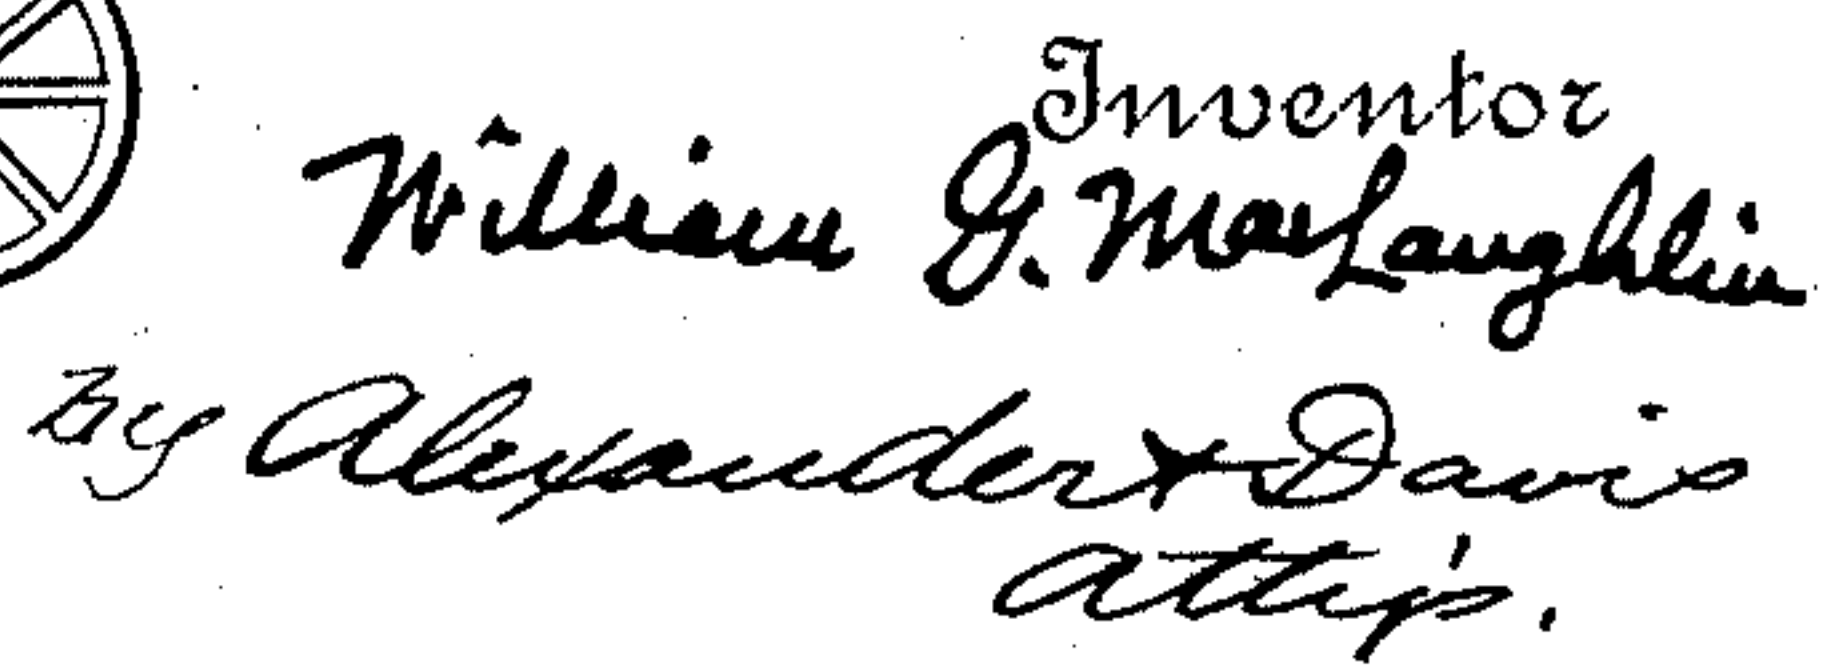 Inventor
William G. MacLaughlin
by Alexander & Davis
Atty's.